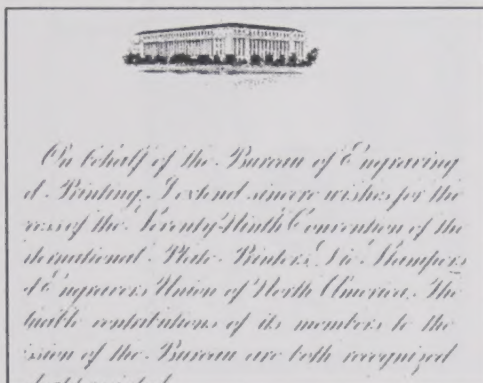 On behalf of the Bureau of Engraving
d Printing, I extend sincere wishes for the
cess of the Seventy-Ninth Convention of the
ternational Plate Printers', Die Stampers
d Engravers Union of North America. The
luable contributions of its members to the
ssion of the Bureau are both recognized